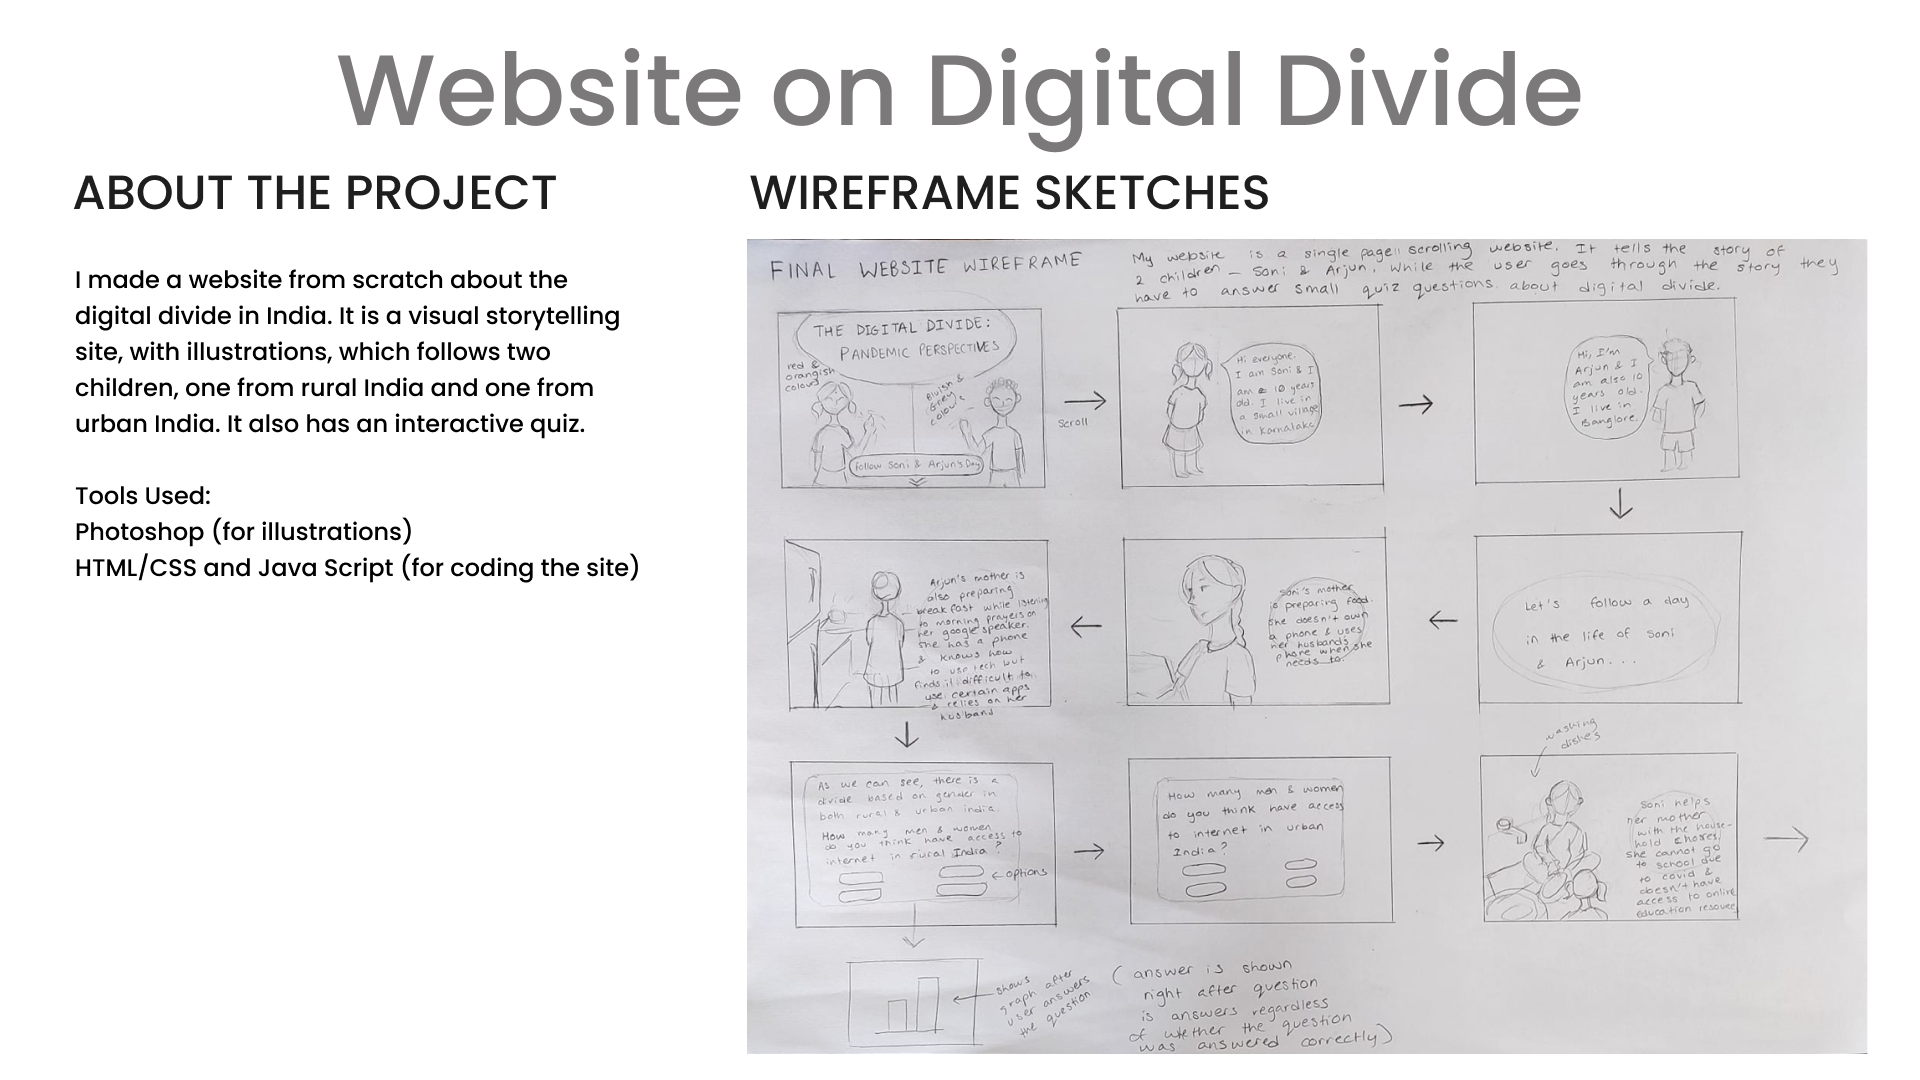 Website on Digital Divide
ABOUT THE PROJECT
I made a website from scratch about the
digital divide in India. It is a visual storytelling
site, with illustrations, which follows two
children, one from rural India and one from
urban India. It also has an interactive quiz.
Tools Used:
Photoshop (for illustrations)
HTML/CSS and Java Script (for coding the site)
WIREFRAME SKETCHES
FINAL WEBSITE WIREFRAME
My website is a single page scrolling website. It tells the story of
2 children - Soni & Arjun. While the user goes through the story they
have to answer small quiz questions about digital divide.
THE DIGITAL DIVIDE:
PANDEMIC PERSPECTIVES
red &
orangish
colours
Bluish &
Grey
colours
Follow Soni & Arjun's Day
Scroll
Hi everyone.
I am Soni & I
am 10 years
old. I live in
a small village
in Karnataka
Hi, I'm
Arjun & I
am also 10
years old.
I live in
Banglore.
Let's follow a day
in the life of Soni
& Arjun...
Soni's mother
is preparing food.
She doesn't own
a phone & uses
her husbands
phone when she
needs to.
Arjun's mother is
also preparing
breakfast while listening
to morning prayers on
her google speaker.
She has a phone
& knows how
to use tech but
finds it difficult to
use certain apps
& relies on her
husband
As we can see, there is a
divide based on gender in
both rural & urban india.
How many men & women
do you think have access to
internet in rural India?
options
How many men & women
do you think have access
to internet in urban
India?
washing
dishes
Soni helps
her mother
with the house-
hold chores.
She cannot go
to school due
to covid &
doesn't have
access to online
education
shows
graph after
user answers
the question
(answer is shown
right after question
is answers regardless
of whether the question
was answered correctly)